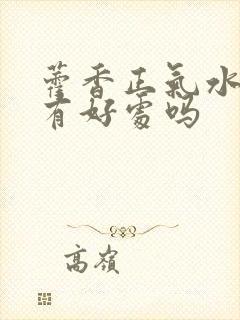 藿香正氣水
有好處吗
高嶺